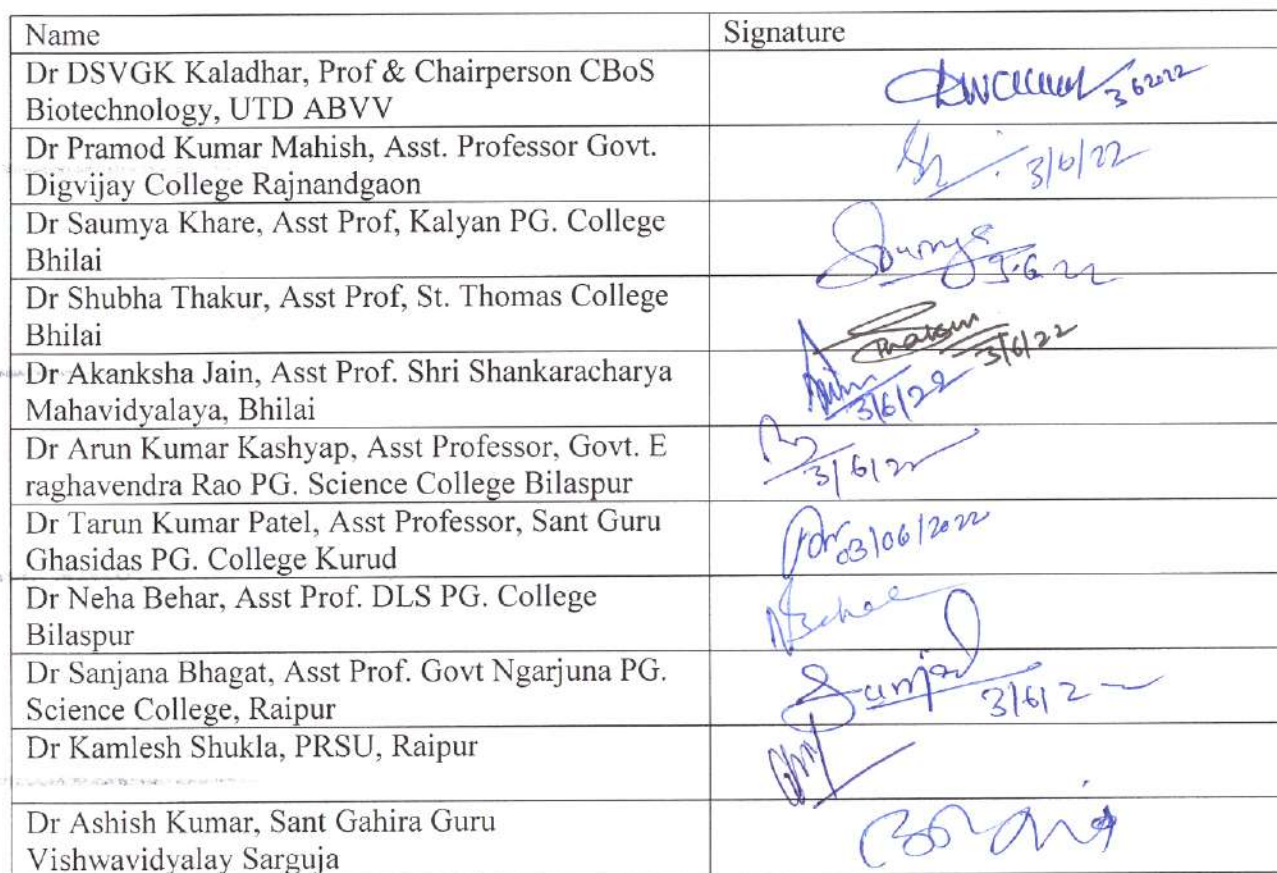 Name Signature
Dr DSVGK Kaladhar, Prof & Chairperson CBoS
Biotechnology, UTD ABVV
3 6 2022
Dr Pramod Kumar Mahish, Asst. Professor Govt.
Digvijay College Rajnandgaon
3/6/22
Dr Saumya Khare, Asst Prof, Kalyan PG. College
Bhilai
Saumya
3.6 22
Dr Shubha Thakur, Asst Prof, St. Thomas College
Bhilai
3/6/22
Dr Akanksha Jain, Asst Prof. Shri Shankaracharya
Mahavidyalaya, Bhilai
3/6/22
Dr Arun Kumar Kashyap, Asst Professor, Govt. E
raghavendra Rao PG. Science College Bilaspur
3/6/22
Dr Tarun Kumar Patel, Asst Professor, Sant Guru
Ghasidas PG. College Kurud
03/06/2022
Dr Neha Behar, Asst Prof. DLS PG. College
Bilaspur
Dr Sanjana Bhagat, Asst Prof. Govt Ngarjuna PG.
Science College, Raipur
3/6/2
Dr Kamlesh Shukla, PRSU, Raipur
Dr Ashish Kumar, Sant Gahira Guru
Vishwavidyalay Sarguja